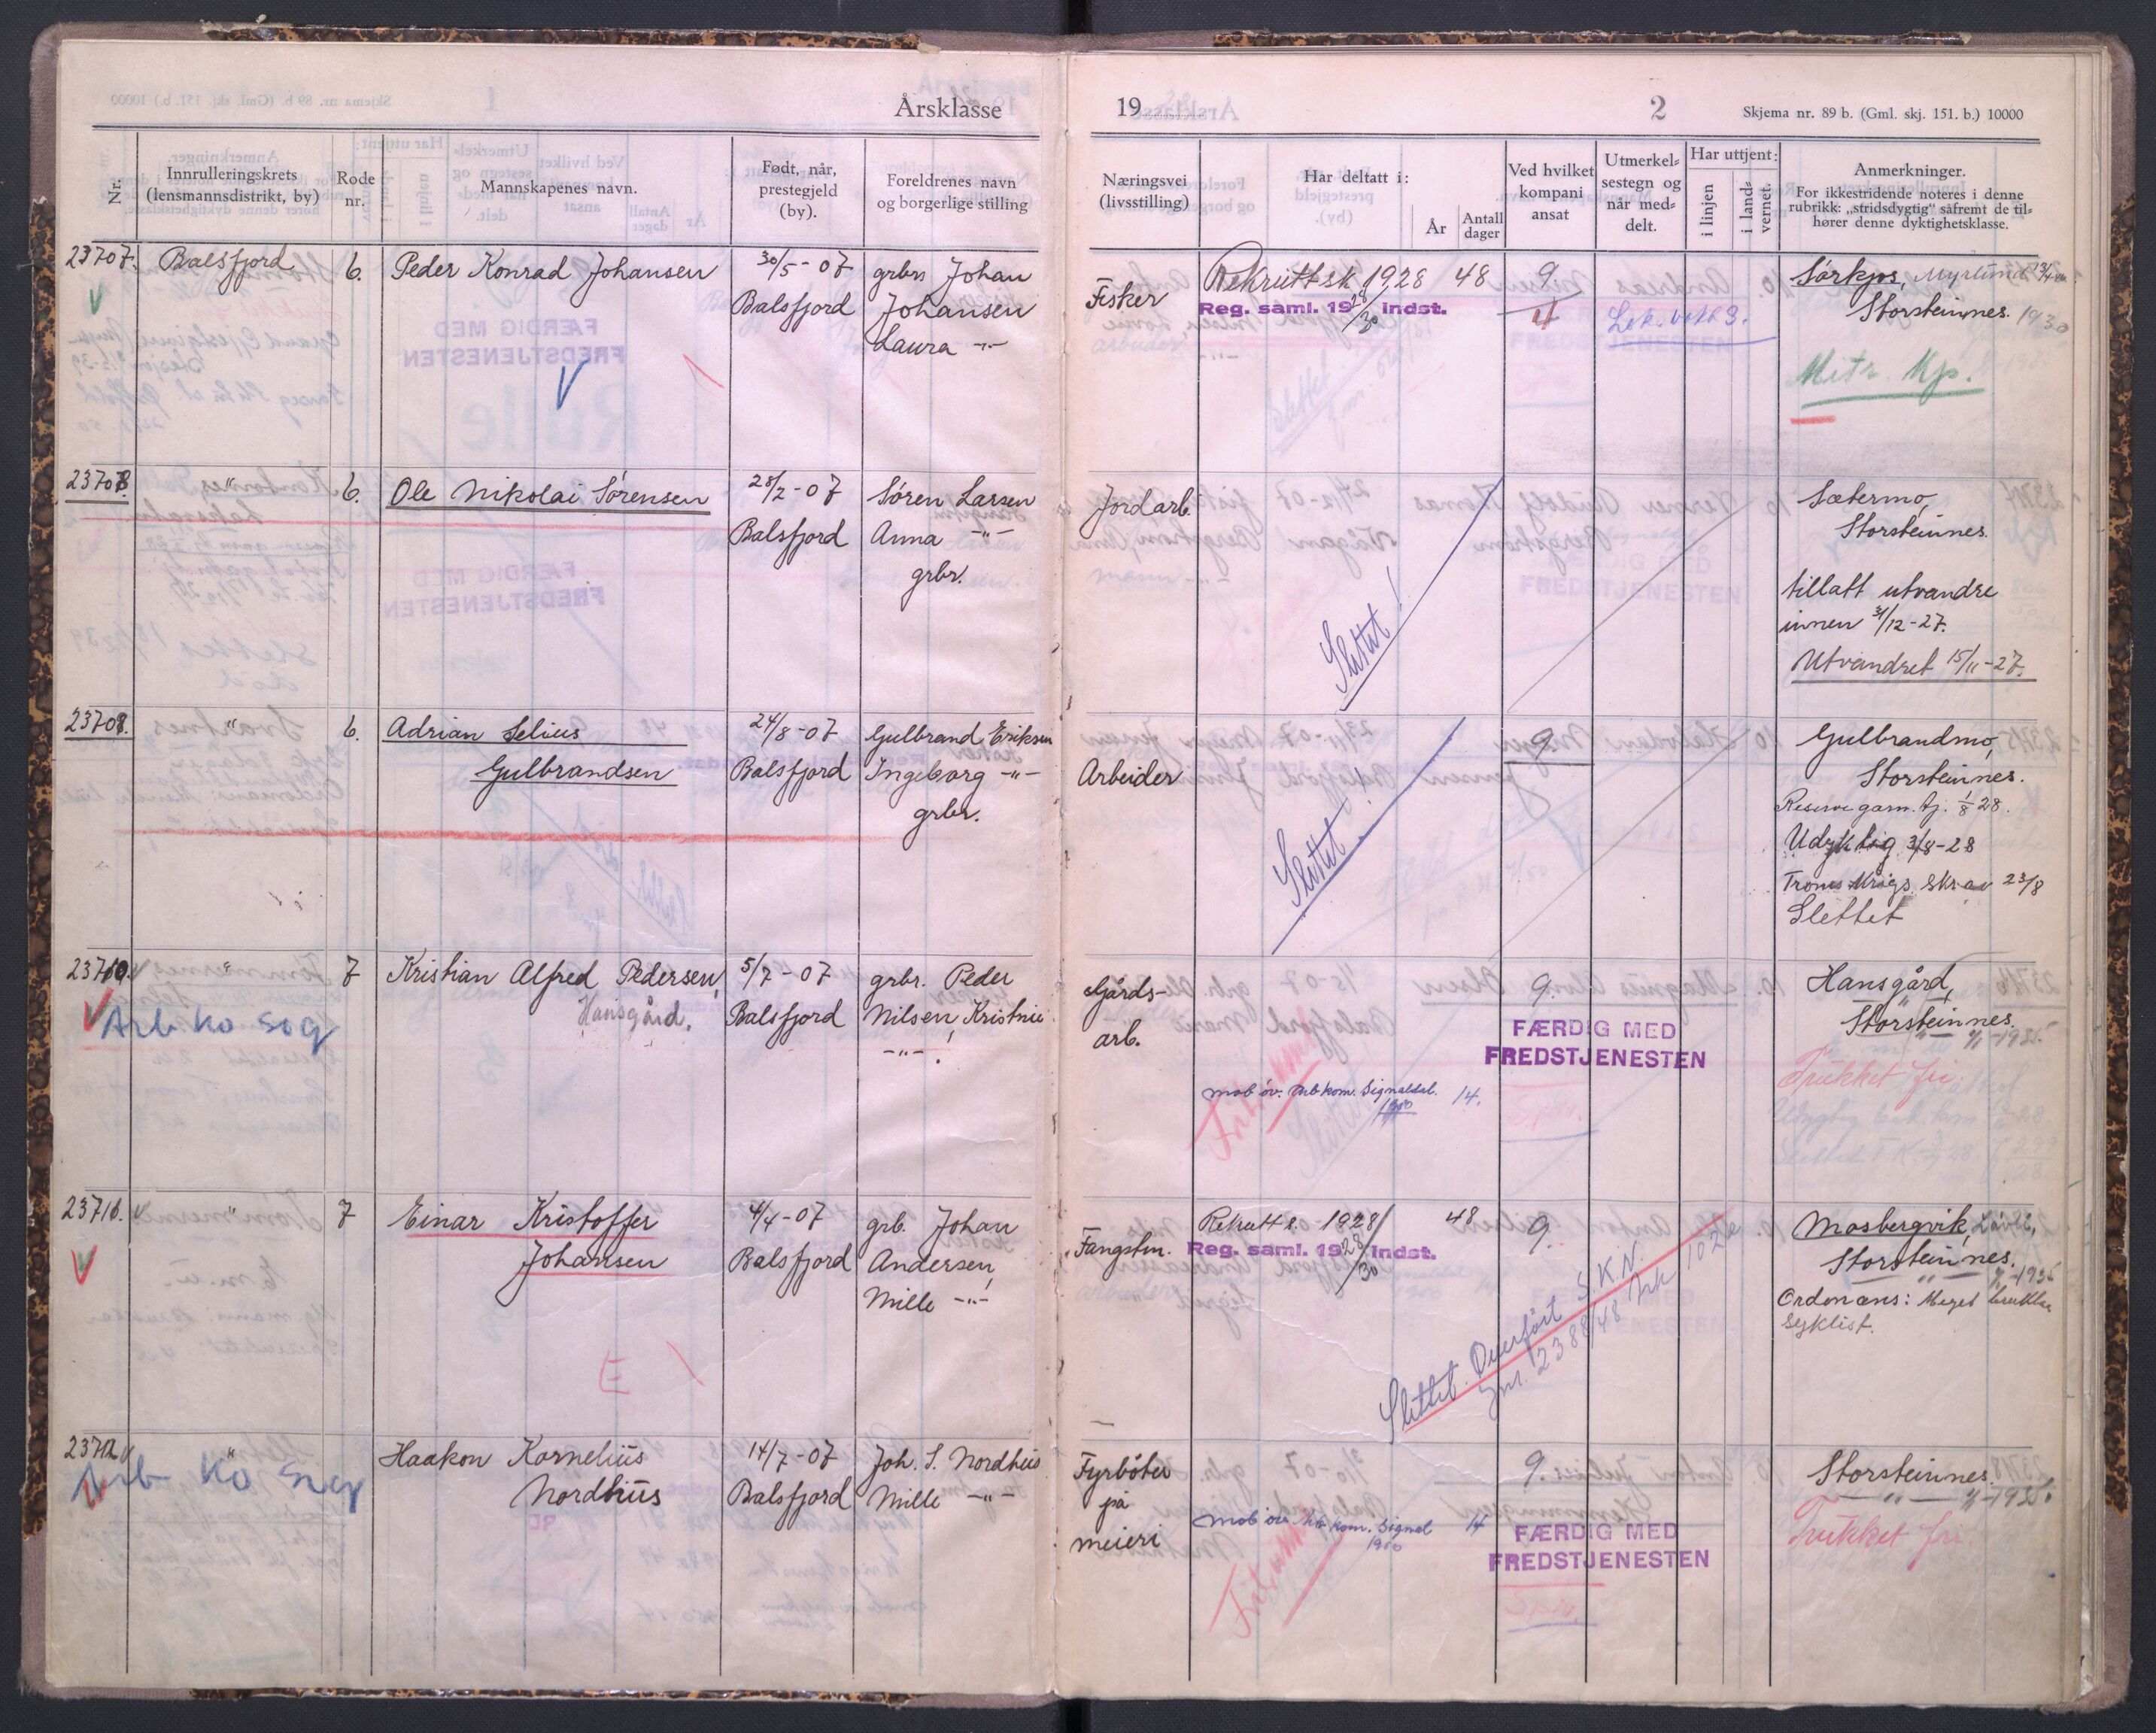 Årsklasse
Nr.
Innrulleringskrets
(lensmannsdistrikt, by)
Rode
nr.
Mannskapenes navn.
Født, når,
prestegjeld
(by).
Foreldrenes navn
og borgerlige stilling
23707.
Balsfjord
6.
Peder Konrad Johansen
30/5-07
Balsfjord
grbr. Johan
Johansen
Laura -"-
23708.
"
6.
Ole Nikolai Sørensen
28/2-07
Balsfjord
Søren Larsen
Anna -"-
grbr.
23709.
"
6.
Adrian Selius
Gulbrandsen
24/8-07
Balsfjord
Gulbrand Eriksen
Ingeborg -"-
grbr.
23710.
"
7
Kristian Alfred Pedersen,
Hansgård.
5/7-07
Balsfjord
grbr. Peder
Nilsen, Kristine
-"-.
Arb Ko Sig
23711.
"
7
Einar Kristoffer
Johansen
4/4-07
Balsfjord
grb. Johan
Andersen,
Mille -"-
E
23712
"
Haakon Kornelius
Nordhus
14/7-07
Balsfjord
Joh. S. Nordhus
Mille -"-
Arb Ko Sig
19
2
Skjema nr. 89 b. (Gml. skj. 151. b.) 10000
Næringsvei
(livsstilling)
Har deltatt i:
År
Antall
dager
Ved hvilket
kompani
ansat
Utmerkel-
sestegn og
når med-
delt.
Har uttjent:
i linjen
i land-
vernet.
Anmerkninger.
For ikkestridende noteres i denne
rubrikk: „stridsdygtig" såfremt de til-
hører denne dyktighetsklasse.
Fisker
Rekruttsk. 1928 48
Reg. saml. 1928/30 indst.
9
4
Sørkjos, Myrlund
Storsteinnes. 1930
Mitr. Kp.
Jordarb.
Slettet!
Sætermo,
Storsteinnes.
tillatt utvandre
innen 31/12-27.
Utvandret 15/11-27.
Arbeider
Slettet!
9
Gulbrandmo,
Storsteinnes.
Reserve garn. tj. 1/8 28.
Udyktig 3/8-28
Troms Krigs. Skr av 23/8
Slettet
Gårds-
arb.
mob öv. Arb kom. Signaldal. 14.
1950
Fritatt
9.
FÆRDIG MED
FREDSTJENESTEN
Hansgård,
Storsteinnes.
-"- 1/1-1935
Trukket fri.
Fangstm.
Rekrutts. 1928 48
Reg. saml. 1928/30 indst.
9.
Slettet. Overført S.K.N.
Jnr. 2388/48 Ark 102e
Mosbergvik,
Storsteinnes.
-"- 1/1-1935
Ordonans: Meget brukbar
Syklist.
Fyrbøter
på
meieri
mob öv. Arb kom. Signal 14
1950
9.
FÆRDIG MED
FREDSTJENESTEN
Storsteinnes.
-"- 1/1-1935.
Trukket fri.